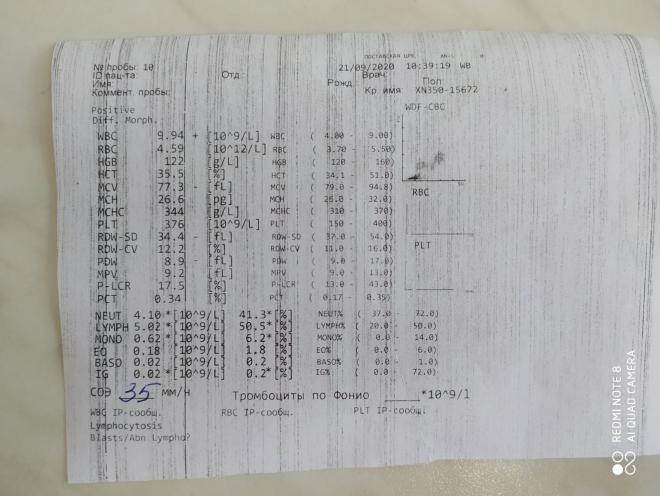 ПОСТАВСКАЯ ЦРБ
№ пробы: 10 21/09/2020 10:39:19 WB
ID пац-та: Отд.: Врач:
Имя: Рожд: Пол
Коммент. пробы: Кр имя: XN350-15672
Positive WDF-CBC
Diff. Morph.
WBC 9.94 + [10^9/L] WBC ( 4.00 - 9.00)
RBC 4.59 [10^12/L] RBC ( 3.70 - 5.50)
HGB 122 [g/L] HGB ( 120 - 160)
HCT 35.5 [%] HCT ( 34.1 - 51.0)
MCV 77.3 - [fL] MCV ( 79.0 - 94.8)
MCH 26.6 [pg] MCH ( 26.0 - 32.0)
RBC
MCHC 344 [g/L] MCHC ( 310 - 370)
PLT 376 [10^9/L] PLT ( 150 - 400)
RDW-SD 34.4 - [fL] RDW-SD ( 37.0 - 54.0)
RDW-CV 12.2 [%] RDW-CV ( 11.0 - 16.0)
PLT
PDW 8.9 - [fL] PDW ( 9.0 - 17.0)
MPV 9.2 [fL] MPV ( 9.0 - 13.0)
P-LCR 17.5 [%] P-LCR ( 13.0 - 43.0)
PCT 0.34 [%] PCT ( 0.17 - 0.35)
NEUT 4.10 * [10^9/L] 41.3 * [%] NEUT% ( 37.0 - 72.0)
LYMPH 5.02 * [10^9/L] 50.5 * [%] LYMPH% ( 20.0 - 50.0)
MONO 0.62 * [10^9/L] 6.2 * [%] MONO% ( 0.0 - 14.0)
EO 0.18 [10^9/L] 1.8 [%] EO% ( 0.0 - 6.0)
BASO 0.02 [10^9/L] 0.2 [%] BASO% ( 0.0 - 1.0)
IG 0.02 * [10^9/L] 0.2 * [%] IG% ( 0.0 - 72.0)
СОЭ 35 мм/ч Тромбоциты по Фонио ______ *10^9/l
WBC IP-сообщ. RBC IP-сообщ. PLT IP-сообщ.
Lymphocytosis
Blasts/Abn Lympho?
REDMI NOTE 8
AI QUAD CAMERA